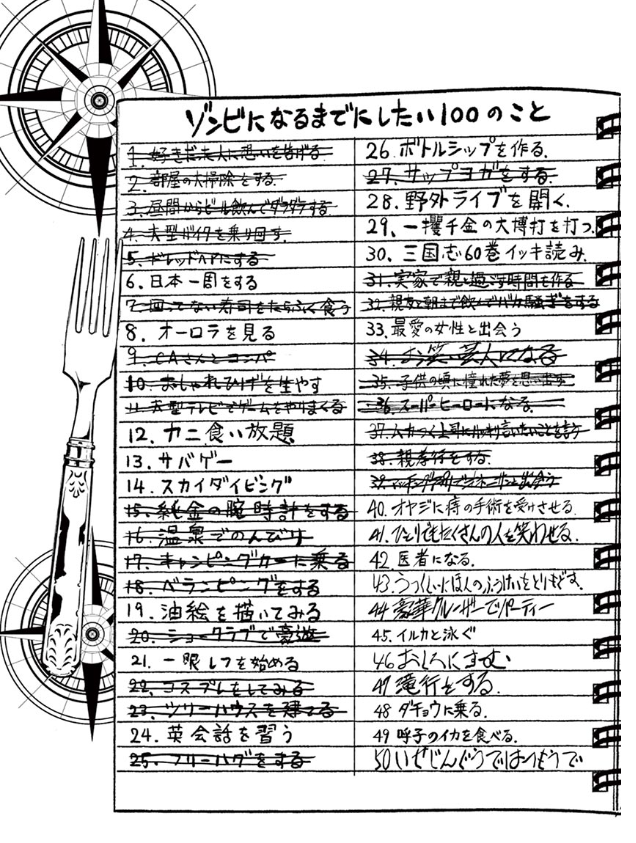 ゾンビになるまでにしたい100のこと
1. 好きだった人に想いを告げる
2. 部屋の大掃除をする.
3. 昼間からビール飲んでダラダラする
4. 大型バイクを乗り回す.
5. ドレッドヘアにする
6. 日本一周をする
7. 回ってない寿司をたらふく食う
8. オーロラを見る
9. CAさんとコンパ
10. おしゃれひげを生やす
11. 大型テレビでゲームをやりまくる
12. カニ食い放題
13. サバゲー
14. スカイダイビング
15. 純金の腕時計をする
16. 温泉でのんびり
17. キャンピングカーに乗る
18. ベランピングをする
19. 油絵を描いてみる
20. ショークラブで豪遊
21. 一眼レフを始める
22. コスプレをしてみる
23. ツリーハウスを建てる
24. 英会話を習う
25. フリーハグをする
26. ボトルシップを作る.
27. サップヨガをする
28. 野外ライブを開く.
29、一攫千金の大博打を打つ.
30、三国志60巻イッキ読み.
31. 実家で親と過ごす時間を作る
32. 親友と朝まで飲んでバカ騒ぎをする
33. 最愛の女性と出会う
34. お笑い芸人になる
35. 子供の頃に憧れた夢を思い出す.
36. スーパーヒーローになる.
37. ムカつく上司にハッキリ言いたいことを言う
38. 親孝行をする.
40. オヤジに痔の手術を受けさせる.
41. ひとりでもたくさんの人を笑わせる.
42. 医者になる.
43. うつくしいにほんのふうけいをとりもどす.
44 豪華クルーザーでパーティー
45. イルカと泳ぐ
46 おしろにすむ
47 滝行をする.
48 ダチョウに乗る.
49 呼子のイカを食べる.
50 いせじんぐうではつもうで